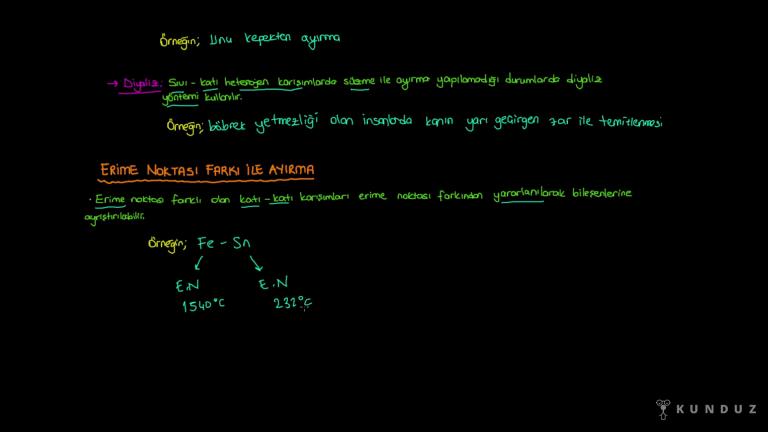 Örneğin; Unu kepekten ayırma
→ Diyaliz: Sıvı - katı heterojen karışımlarda süzme ile ayırma yapılamadığı durumlarda diyaliz
yöntemi kullanılır.
Örneğin; böbrek yetmezliği olan insanlarda kanın yarı geçirgen zar ile temizlenmesi
ERİME NOKTASI FARKI İLE AYIRMA
• Erime noktası farklı olan katı - katı karışımları erime noktası farkından yararlanılarak bileşenlerine
ayrıştırılabilir.
Örneğin; Fe - Sn
E.N E.N
1540°C 232°C
KUNDUZ